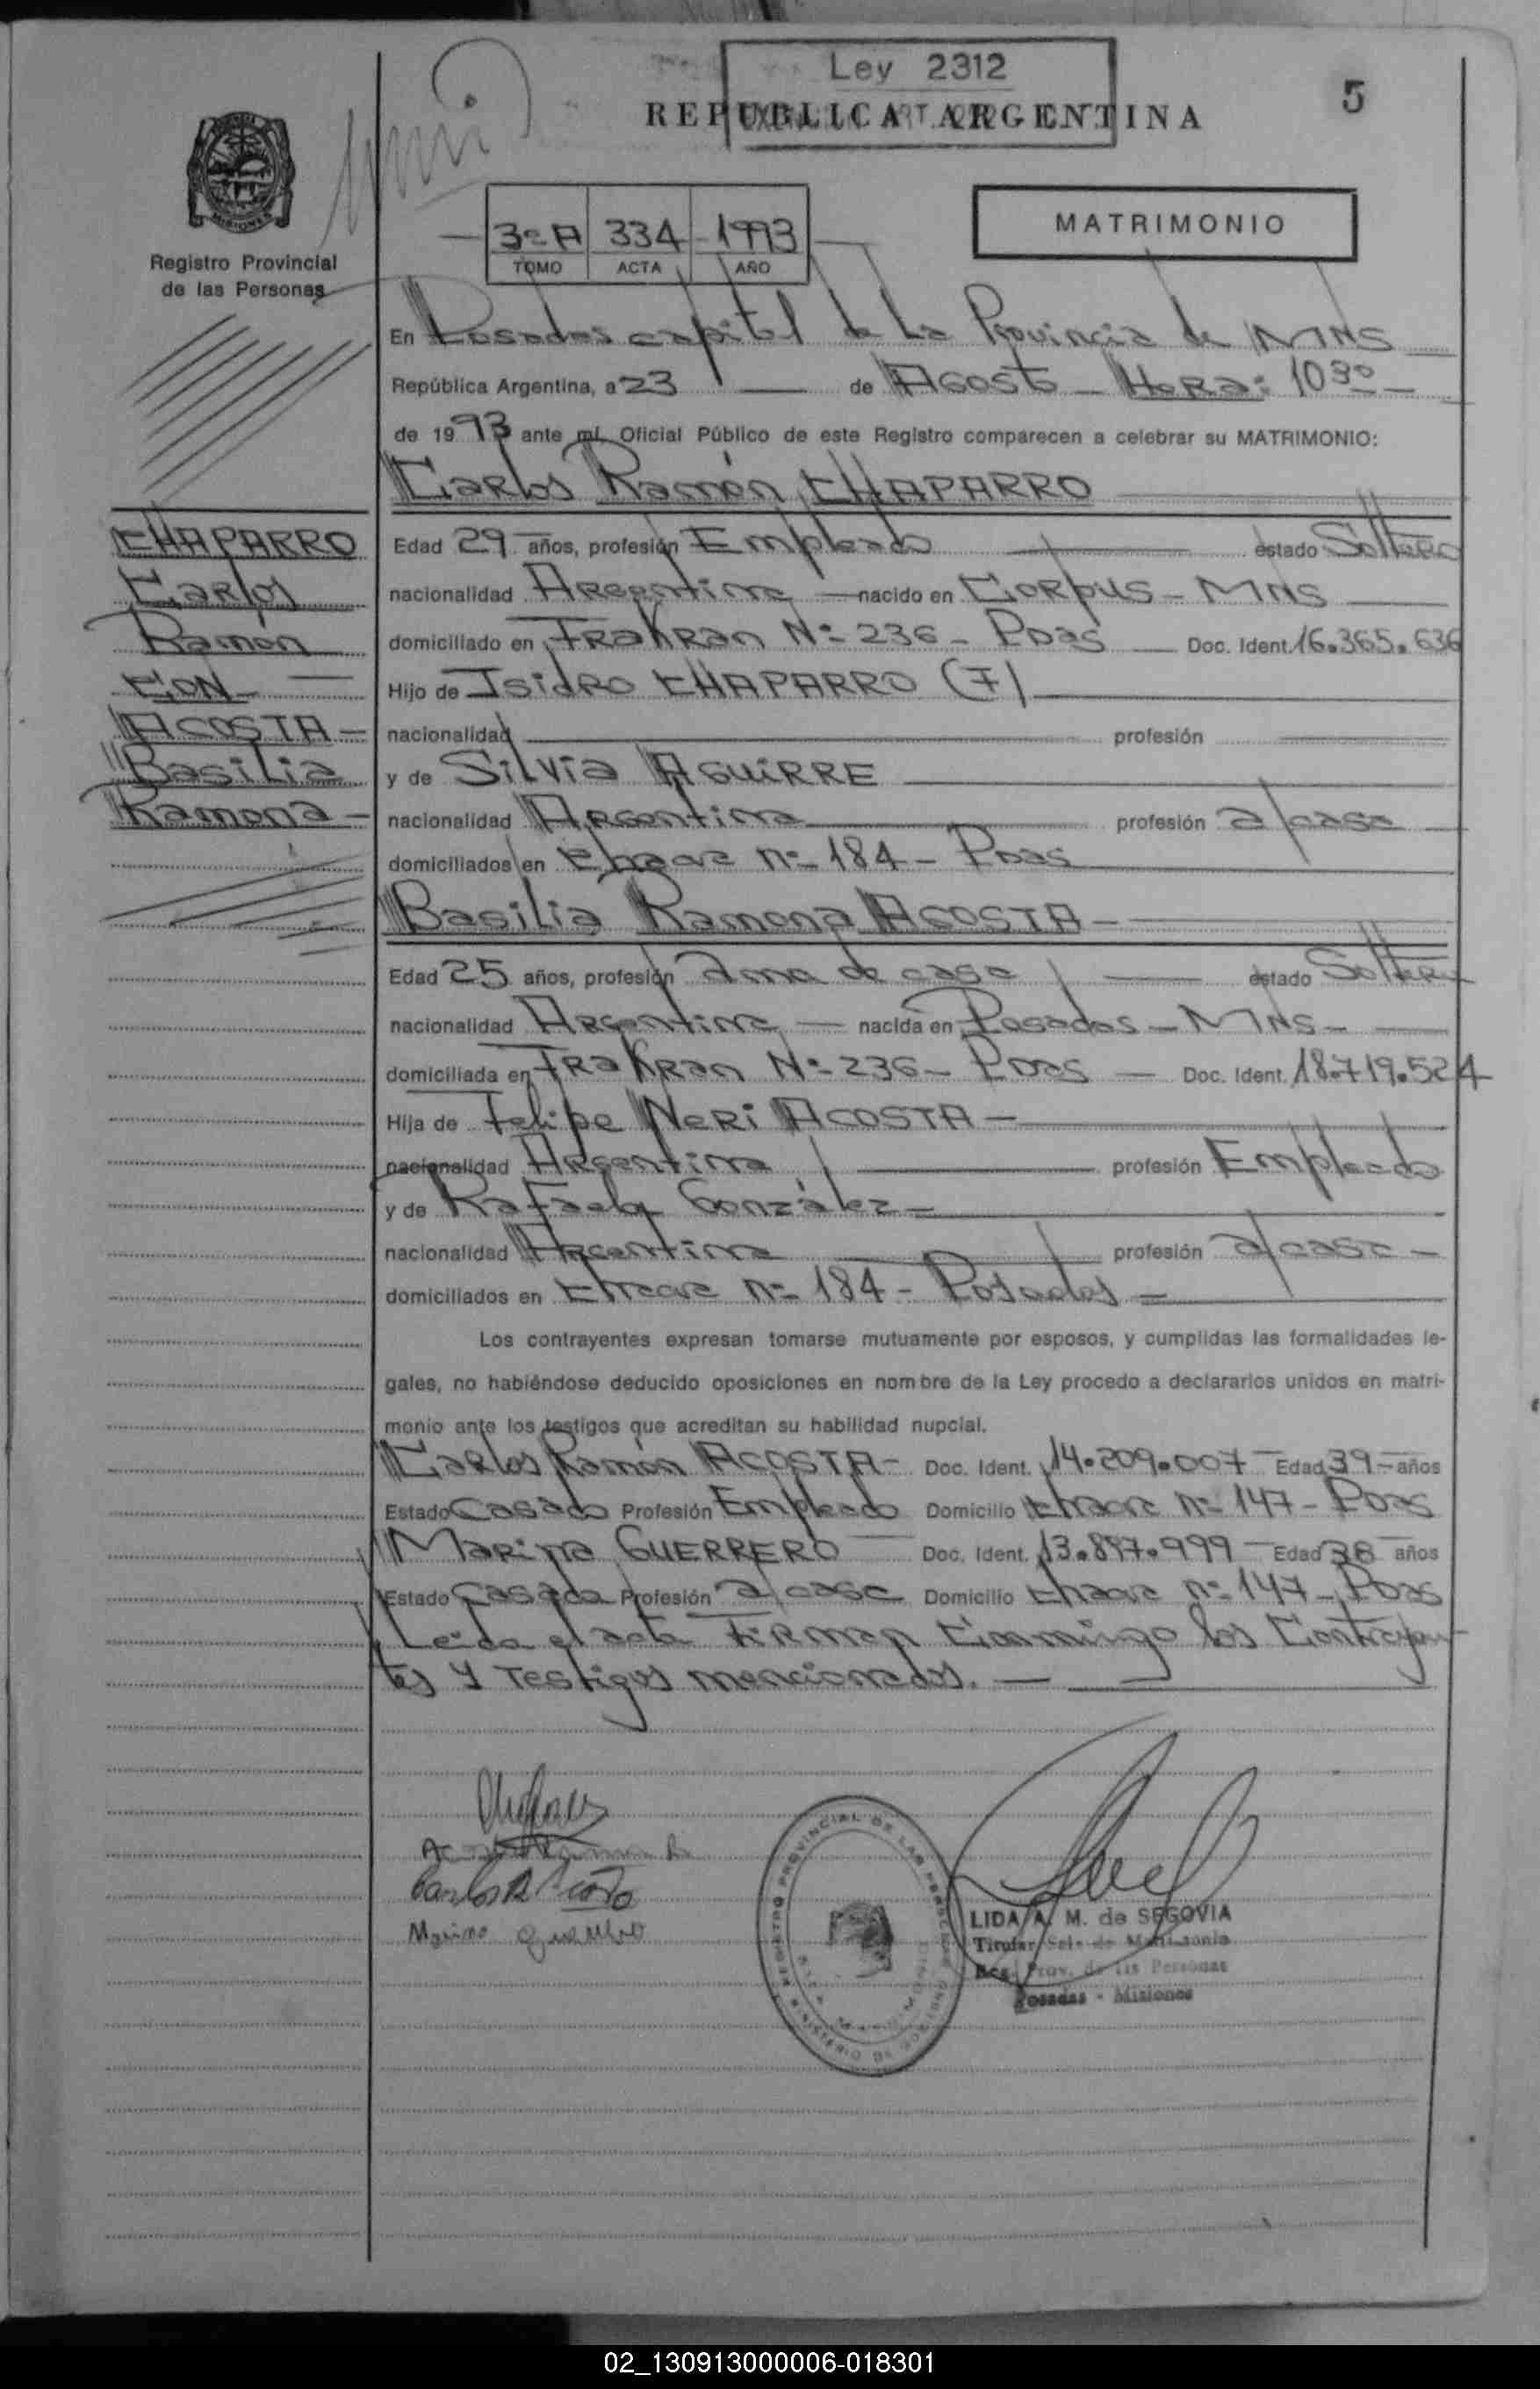 Ley 2312
5
REPUBLICA ARGENTINA
Registro Provincial
de las Personas
3º A 334 1993
TOMO ACTA AÑO
MATRIMONIO
En Posadas capital de La Provincia de MNS
República Argentina, a 23 de Agosto - Hora: 10 30
de 19 93 ante mí, Oficial Público de este Registro comparecen a celebrar su MATRIMONIO:
Carlos Ramón CHAPARRO
CHAPARRO
Carlos
Ramón
CON
ACOSTA
Basilia
Ramona
Edad 29 años, profesión Empleado estado Soltero
nacionalidad Argentina nacido en Corpus - MNS
domiciliado en Trakran Nº 236 - Pdas Doc. Ident. 16.365.636
Hijo de Isidro CHAPARRO (F)
nacionalidad profesión
y de Silvia AGUIRRE
nacionalidad Argentina profesión a/casa
domiciliados en nº 184 - Pdas
Basilia Ramona ACOSTA
Edad 25 años, profesión Ama de casa estado Soltera
nacionalidad Argentina nacida en Posadas - MNS
domiciliada en Trakran Nº 236 - Pdas Doc. Ident. 18.719.524
Hija de Felipe Neri ACOSTA
nacionalidad Argentina profesión Empleado
y de Rafaela González
nacionalidad Argentina profesión a/casa
domiciliados en nº 184 - Posadas
Los contrayentes expresan tomarse mutuamente por esposos, y cumplidas las formalidades le-
gales, no habiéndose deducido oposiciones en nombre de la Ley procedo a declararlos unidos en matri-
monio ante los testigos que acreditan su habilidad nupcial.
Carlos Ramón ACOSTA - Doc. Ident. 14.209.007 Edad 39 años
Estado Casado Profesión Empleado Domicilio nº 147 - Pdas
Marina GUERRERO Doc. Ident. Edad 38 años
Estado Casada Profesión a/casa Domicilio nº 147 - Pdas
Leida el acta Firman Conmingo los Contrayen
tes y Testigos mencionados.
Marina Guerrero
REGISTRO PROVINCIAL DE LAS PERSONAS
MINISTERIO DE GOBIERNO
LIDA A. M. de SEGOVIA
Titular Sala de Matrimonio
Reg. Prov. de las Personas
Posadas - Misiones
02_130913000006-018301